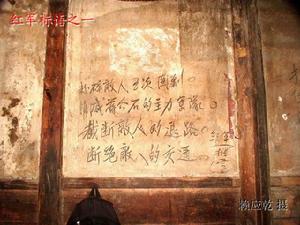 红军标语之一
粉碎敌人五次围剿。
消灭蒋介石的主力军队。
截断敌人的退路。
断绝敌人的交通。
赖应乾 摄